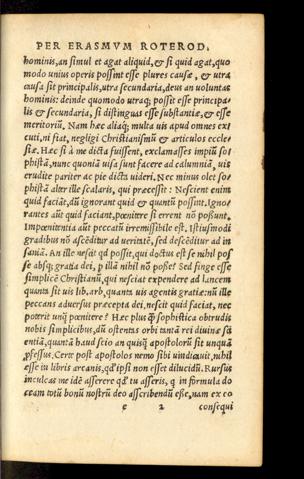 PER ERASMVM ROTEROD.
hominis, an simul et agat aliquid, & si quid agat, quo
modo unius operis possint esse plures causæ, & utra
causa sit principalis, utra secundaria, deus an voluntas
hominis: deinde quomodo utraq; possit esse principa-
lis & secundaria, si distinguas esse substantiæ, & esse
meritoriũ. Nam hæc aliaq; multa uis apud omnes ex
cuti, ni fiat, negligi Christianismũ & articulos eccle-
siæ. Hæc si à me dicta fuissent, exclamasses impiũ so-
phistã, nunc quoniã uisa sunt facere ad calumniã, uis
erudite pariter ac pie dicta uideri. Nec minus olet so-
phistã alter ille scalaris, qui præcessit: Nesciunt enim
quid faciãt, dũ ignorant quid & quantũ possint. Igno-
rantes aũt quid faciant, pœnitere si errent nõ possunt.
Impœnitentia aũt peccatũ irremissibile est. Istiusmodi
gradibus nõ ascẽditur ad ueritatẽ, sed descẽditur ad in
saniã. An ille nescit qd possit, qui doctus est se nihil pos
se absq; gratia dei, p illã nihil nõ posse? Sed finge esse
simplicẽ Christianũ, qui nesciat expendere ad lancem
quanta sit uis lib. arb. quanta uis agentis gratiæ: nũ ille
peccans aduersus præcepta dei, nescit quid faciat, nec
poterit unq̃ pœnitere? Hæc plus q̃ sophistica obtrudis
nobis simplicibus, dũ ostentas orbi tantã rei diuinæ sci
entiã, quantã haud scio an quisq̃ apostolorũ sit unquã
pfessus. Certe post apostolos nemo sibi uindicauit, nihil
esse in libris arcanis, qd ipsi non esset dilucidũ. Rursus
inculcas me idẽ asserere qd tu asseris, q in formula do
ceam totũ bonũ nostrũ deo ascribendũ esse, nam ex eo
e 2 consequi